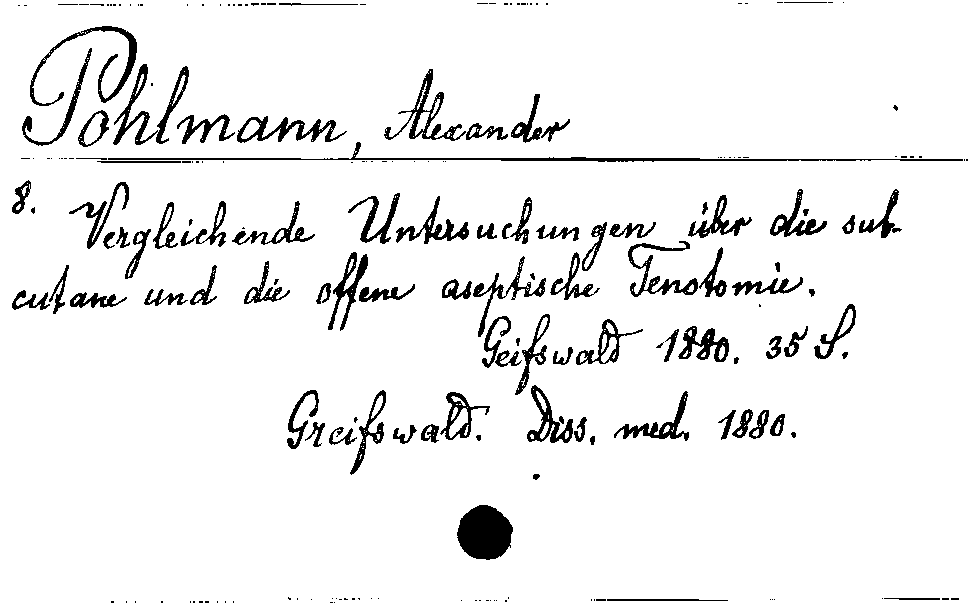 Pohlmann, Alexander
8. Vergleichende Untersuchungen über die sub-
cutane und die offene aseptische Tenotomie.
Geifswald 1880. 35 S.
Greifswald. Diss. med. 1880.